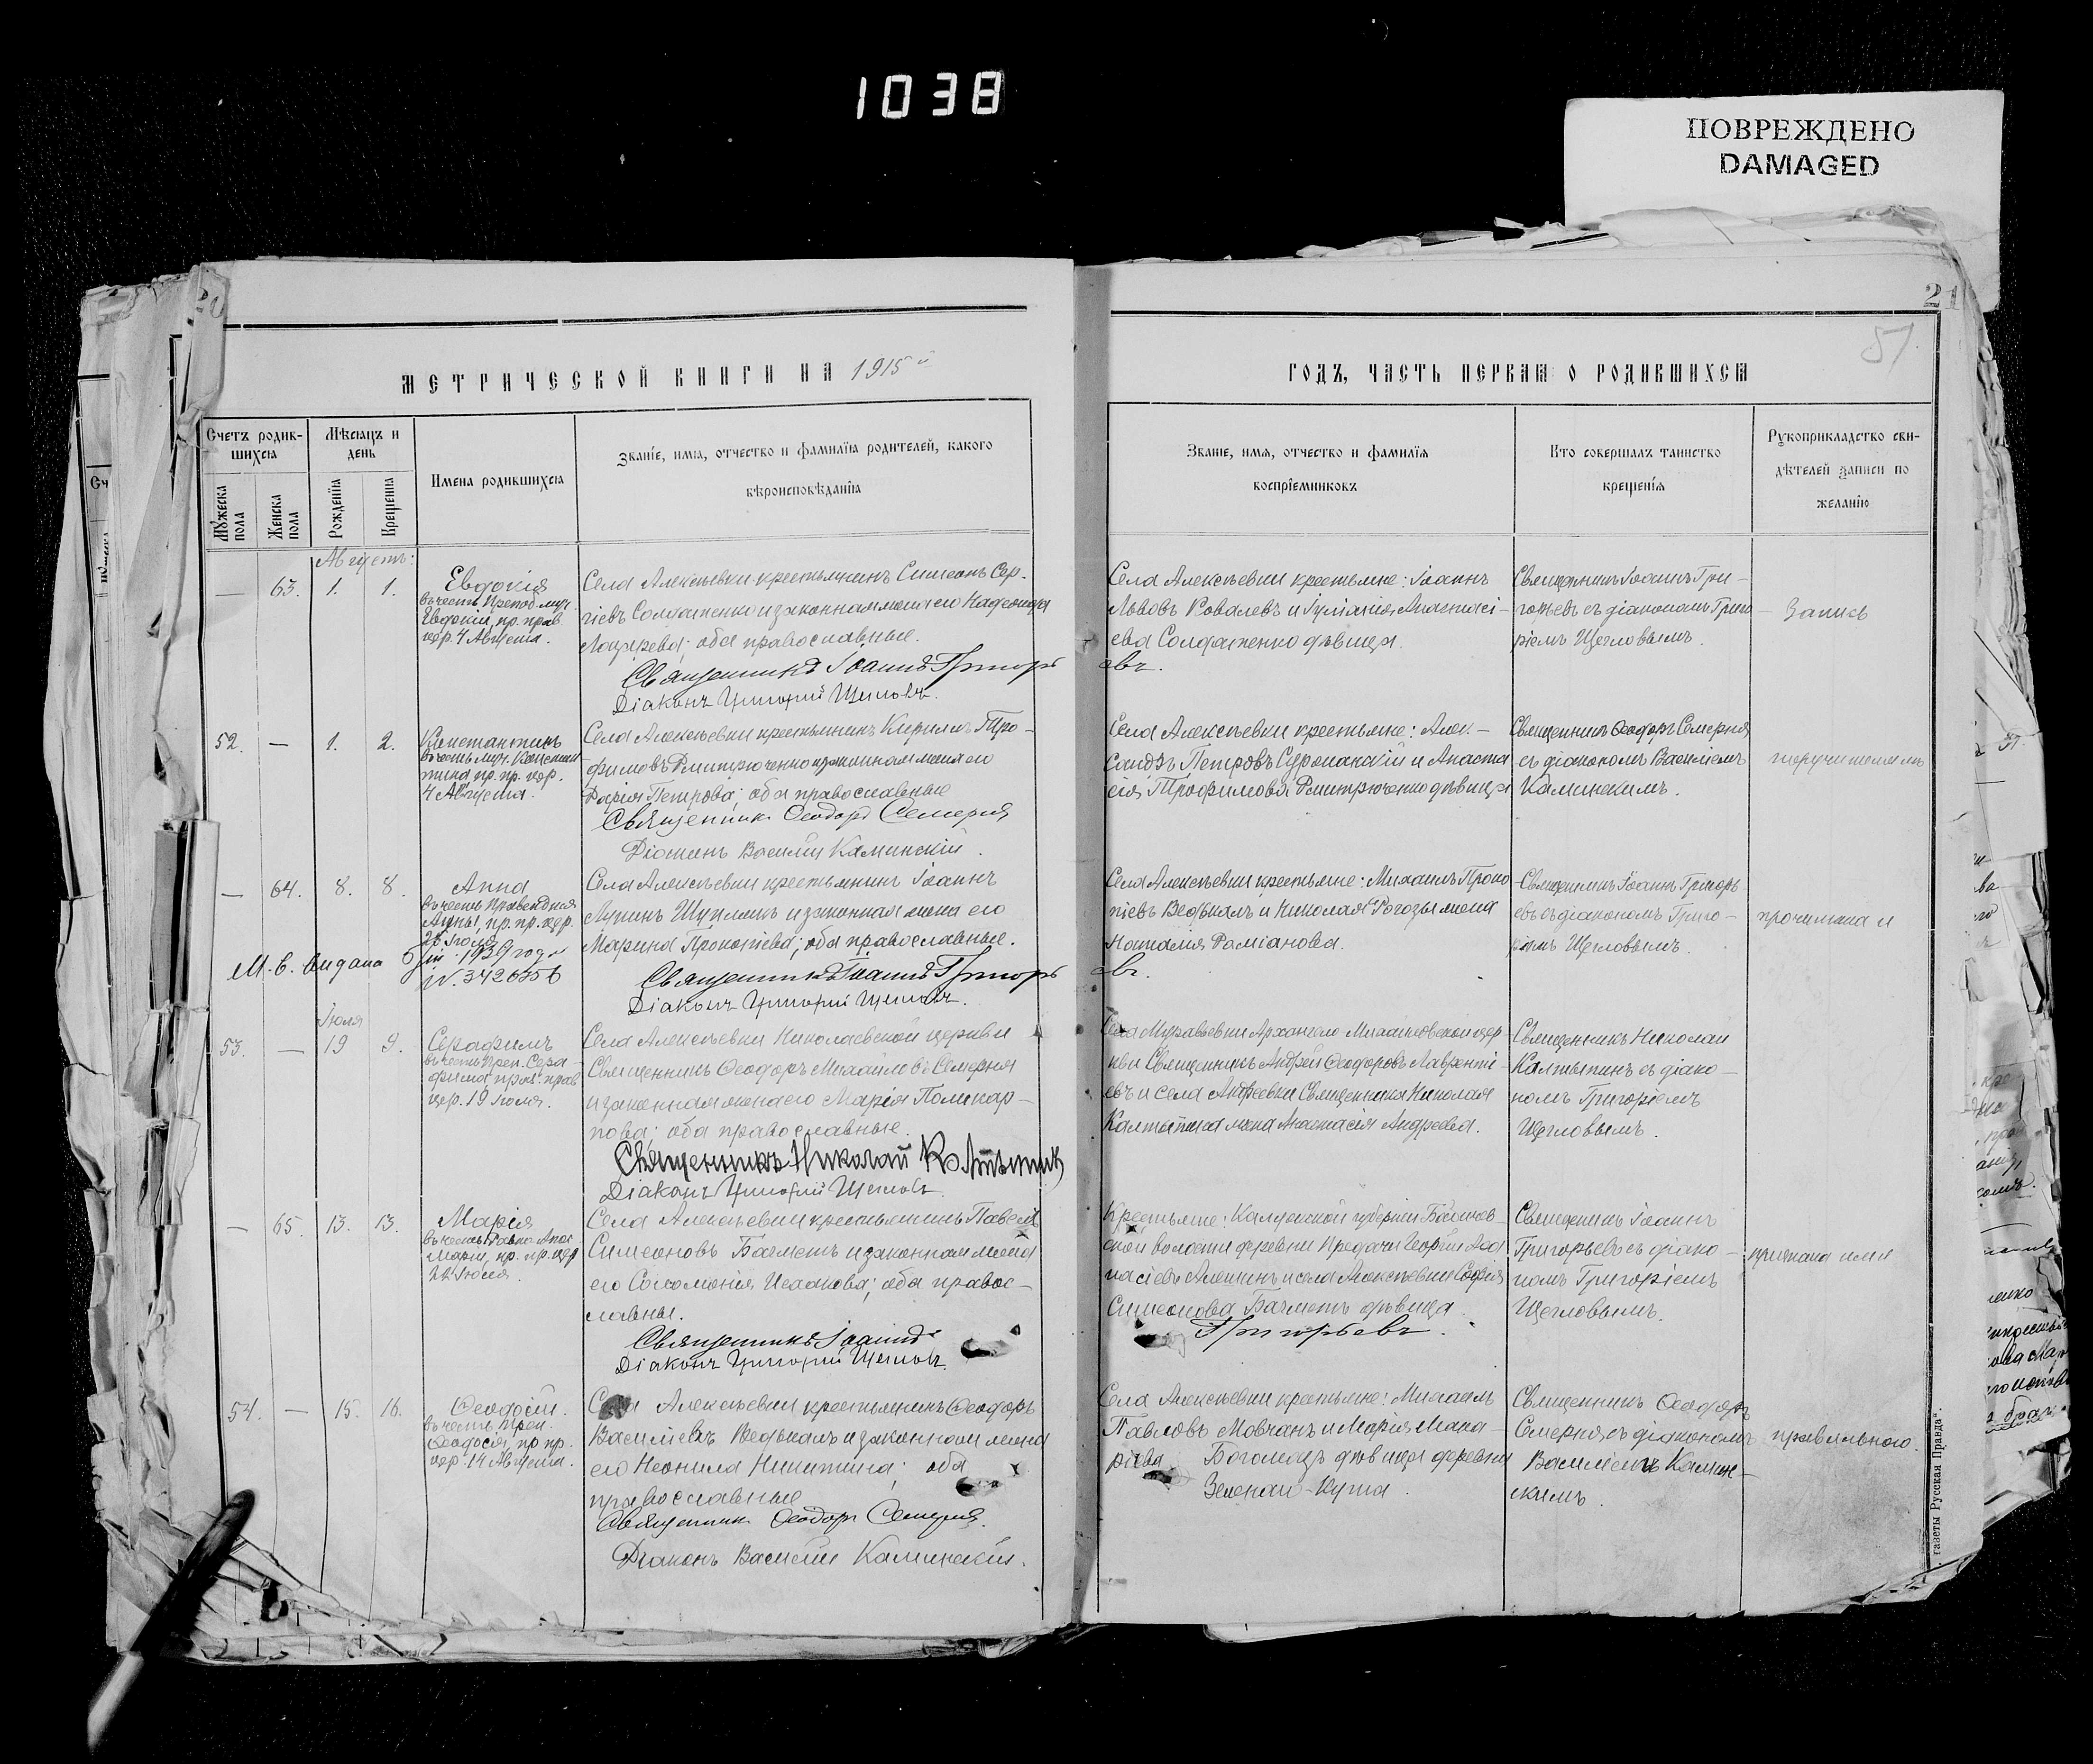 1038
ПОВРЕЖДЕНО
DAMAGED
21
57
МЕТРИЧЕСКОЙ КНИГИ НА 1915й
ГОДЪ, ЧАСТЬ ПЕРВАЯ О РОДИВШИХСЯ
Счетъ родив-
шихся
Мѣсяцъ и
день
Имена родившихся
Званіе, имя, отчество и фамилія родителей, какого
вѣроисповѣданія
Мужеска
пола
Женска
пола
Рожденія
Крещенія
Званіе, имя, отчество и фамилія
воспріемниковъ
Кто совершалъ таинство
крещенія
Рукоприкладство сви-
дѣтелей записи по
желанію
Августъ:
— 63. 1. 1.
Евдокія
въ честь Препод. муч.
Евдокіи, пр. прав.
цер. 4 Августа.
Села Алексѣевки крестьянинъ Симеонъ Сер-
гіевъ Солдатенко и законная жена его
Лазарева; оба православные.
Священникъ Іоаннъ Григорь
евъ.
Діаконъ Григорій Щегловъ.
Села Алексѣевки крестьяне: Іоаннъ
Львовъ Ковалевъ и Іуліанія Анастасі-
ева Солдатенко дѣвица.
Священникъ Іоаннъ Гри-
горьевъ съ діакономъ Григо
ріемъ Щегловымъ.
Запись
52. — 1. 2.
Константинъ
въ честь муч. Констан
тина, пр. пр. цер.
4 Августа.
Села Алексѣевки крестьянинъ Кириллъ Тро-
фимовъ Дмитрюченко и законная жена его
Дарія Петрова; оба православные
Священник. Ѳеодоръ Семерня
Діаконъ Василій Каминскій.
Села Алексѣевки крестьяне: Алек-
сандръ Петровъ и Анаста
сія Трофимова Дмитрюченко дѣвица
Священникъ Ѳеодоръ Семерня
съ діакономъ Василіемъ
Каминскимъ.
— 64. 8. 8.
Анна
въ честь Праведныя
Анны, пр. пр. цер.
25 Іюля
М. в. видана
1939 года
Села Алексѣевки крестьянинъ Іоаннъ
и законная жена его
Марина Прокопіева; оба православные.
Священникъ Іоаннъ Григорь
евъ.
Діаконъ Григорій Щегловъ.
Села Алексѣевки крестьяне: Михаилъ Проко
піевъ Ведькалъ и Николая Рогозы жена
Наталія Даміанова.
Священникъ Іоаннъ Григорь
евъ съ діакономъ Григо-
ріемъ Щегловымъ.
прочитана и
Іюля
53. — 19 9.
Серафимъ
въ честь Преп. Сера-
фима, пр. прав.
цер. 19 Іюля.
Села Алексѣевки Николаевской церкви
Священникъ Ѳеодоръ Михайловъ Семерня
и законная жена его Марія Поликар-
пова; оба православные.
Священникъ Николай Калтыпинъ
Діаконъ Григорій Щегловъ.
Села Муравьевки Архангело Михайловской цер
кви Священникъ Андрей Ѳеодоровъ Лаврентi-
евъ и села Андреевки Священника Николая
Калтыпина жена Анастасія Андреева.
Священникъ Николай
Калтыпинъ съ діако-
номъ Григоріемъ
Щегловымъ.
— 65. 13. 13.
Марія
въ честь Равно-Апос
Маріи, пр. пр. цер
22 Іюля.
Села Алексѣевки крестьянинъ Павелъ
Симеоновъ Багметъ и законная жена
его Соломонія Исаакова; оба правос-
лавны.
Священникъ Іоаннъ
Григорьевъ.
Діаконъ Григорій Щегловъ.
Крестьяне: Калужской губерніи
ской волости деревни Георгій Аѳа
насіевъ Алешинъ и села Алексѣевки Софія
Симеонова Багметъ дѣвица.
Священникъ Іоаннъ
Григорьевъ съ діако-
номъ Григоріемъ
Щегловымъ.
признана ими
54. — 15. 16.
Ѳеодосій.
въ честь Преп.
Ѳеодосія, пр. пр.
цер. 14 Августа.
Села Алексѣевки крестьянинъ Ѳеодоръ
Василіевъ Ведькалъ и законная жена
его Неонила Никитина; оба
православные
Священник. Ѳеодоръ Семерня.
Діаконъ Василій Каминскій.
Села Алексѣевки крестьяне: Михаилъ
Павловъ Мовчанъ и Марія Мака-
ріева Богомазъ дѣвица деревни
Зеленаи-Кута.
Священникъ Ѳеодоръ
Семерня съ діакономъ
Василіемъ Камин-
скимъ.
правильною.
газеты Русская Правда".